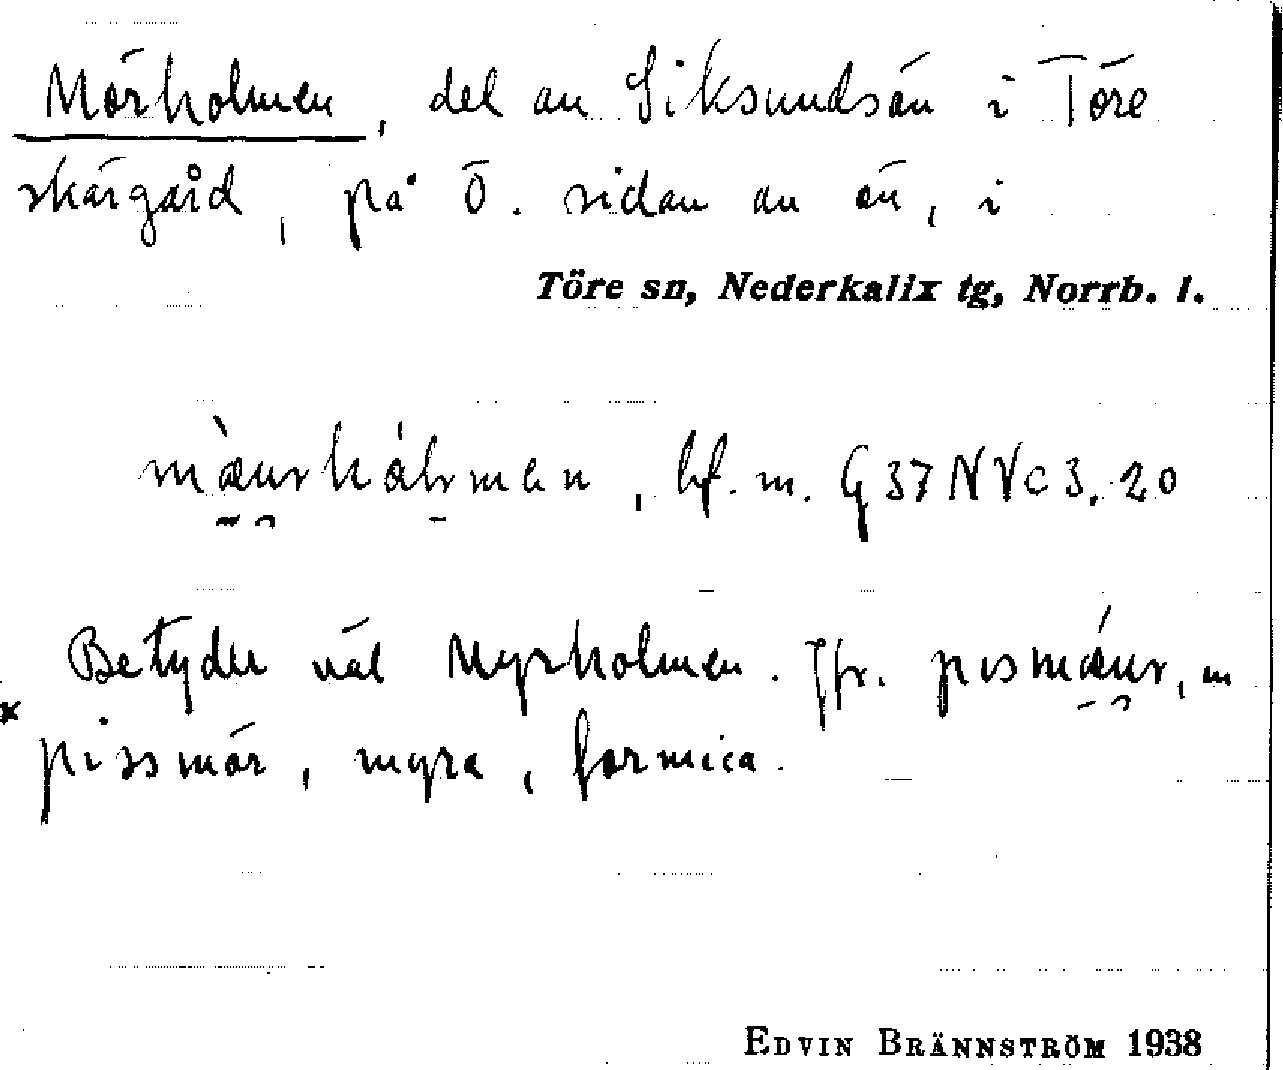 Mörholmen, del av Siksundsön i Töre
skärgård, på Ö. sidan av ön, i
Töre sn, Nederkalix tg, Norrb. l.
bf. m. G 37 NV c 3. 20
Betyder väl Myrholmen. Jfr. m
pissmör, myra, formica.
EDVIN BRÄNNSTRÖM 1938